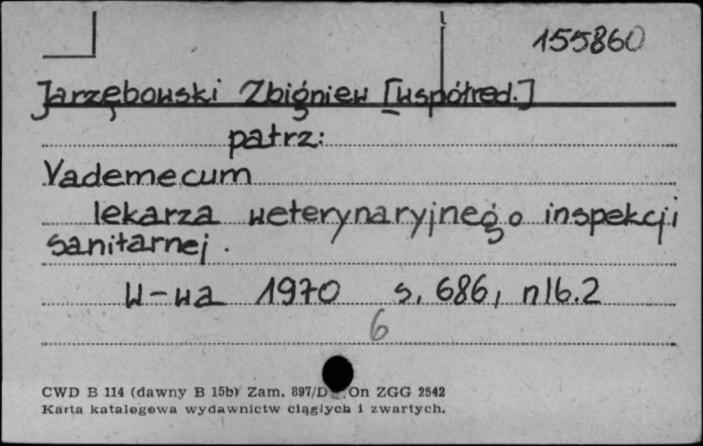 155860
Jarzębowski Zbigniew [współred.]
patrz:
Vademecum
lekarza weterynaryjnego inspekcji
sanitarnej.
W-wa 1970 s. 686, nlb.2
6
CWD B 114 (dawny B 15b) Zam. 897/D On ZGG 2542
Karta katalogowa wydawnictw ciągłych i zwartych.